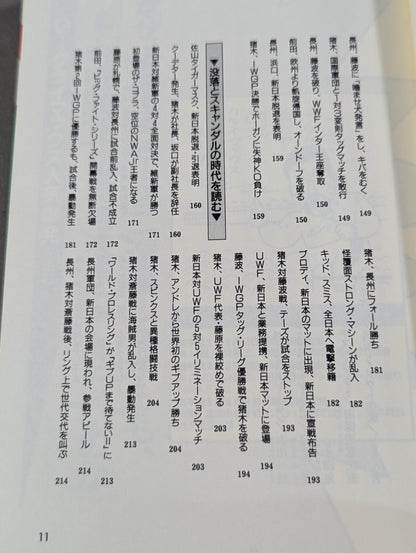 長州、藤波に「噛ませ犬発言」をし、キバをむく 149
猪木、国際軍団と1対3変則タッグマッチを敢行 149
長州、藤波を破り、WWFインター王座奪取 150
前田、欧州より凱旋帰国し、オーンドーフを破る 150
長州、浜口、新日本脱退を表明 159
猪木、IWGP決勝でホーガンに失神KO負け 159
▼没落とスキャンダルの時代を読む▼
佐山タイガーマスク、新日本脱退・引退表明 160
クーデター発生、猪木が社長、坂口が副社長を辞任 160
新日本対維新軍の4対4全面対決で、維新軍が勝つ 171
初登場のザ・コブラ、空位のNWAJr王者になる 171
藤原が札幌で、藤波対長州に試合前乱入、試合不成立 172
前田、「ビッグ・ファイト・シリーズ」開幕戦を無断欠場 172
猪木第2回IWGPに優勝するも、試合後、暴動発生 181
猪木、長州にフォール勝ち 181
怪覆面ストロング・マシーンが乱入 182
キッド、スミス、全日本へ電撃移籍 182
ブロディ、新日本のマットに出現、新日本に宣戦布告 193
猪木対藤波戦、テーズが試合をストップ 193
UWF、新日本と業務提携、新日本マットに登場 194
藤波、IWGPタッグ・リーグ優勝戦で猪木を破る 194
猪木、UWF代表・藤原を裸絞めで破る 203
新日本対UWFの5対5イリミネーションマッチ 203
猪木、アンドレから世界初のギブアップ勝ち 204
猪木、スピンクスと異種格闘技戦 204
猪木対斎藤戦に海賊男が乱入し、暴動発生 213
「ワールド・プロレスリング」が「ギブUPまで待てない!!」に 213
長州軍団、新日本の会場に現われ、参戦アピール 214
長州、猪木対斎藤戦後、リング上で世代交代を叫ぶ 214
11